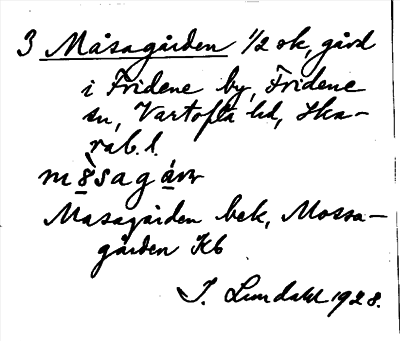 3 Måsagården 1/2 ok, gård
i Fridene by, Fridene
sn, Vartofta hd, Ska-
rab. l.
Masagården bek, Mossa-
gården Kb
I. Lundahl 1928.